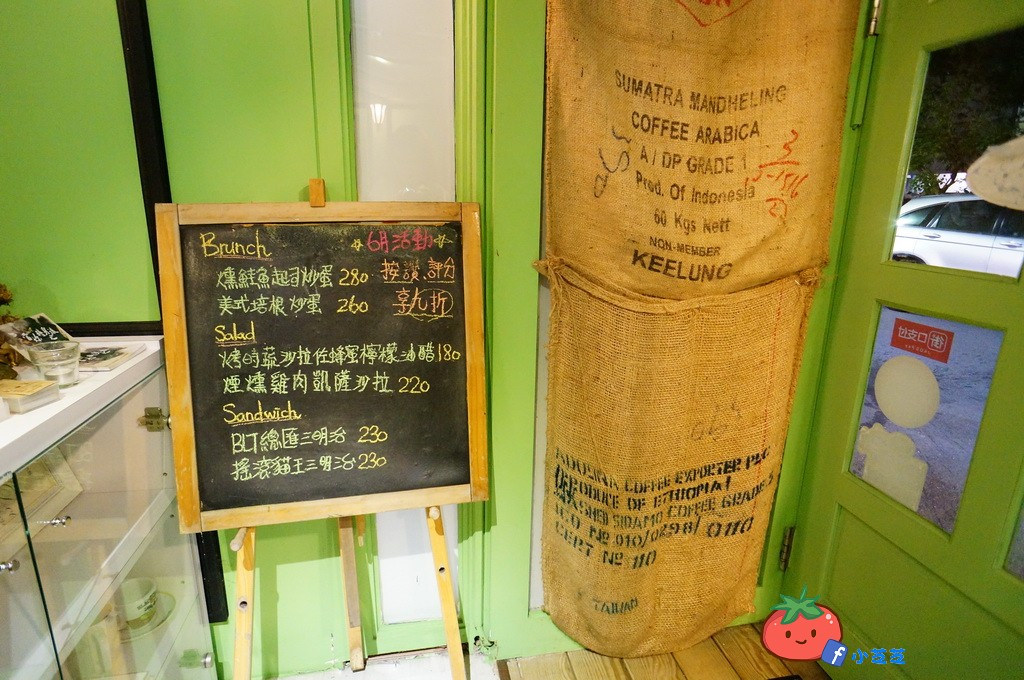 Brunch
6月活動
燻鮭魚起司炒蛋 280
按讚、評分
美式培根炒蛋 260
享九折
Salad
爐烤時蔬沙拉佐蜂蜜檸檬油醋 180
煙燻雞肉凱薩沙拉 220
Sandwich
BLT總匯三明治 230
搖滾貓王三明治 230
SUMATRA MANDHELING
COFFEE ARABICA
A / DP GRADE 1
Prod. Of Indonesia
60 Kgs Nett
NON-MEMBER
KEELUNG
COFFEE EXPORTER PLC
PRODUCE OF ETHIOPIA
WASHED SIDAMO COFFEE GRADE
ICO Nº 010/0298/0110
CERT Nº 110
TAIWAN
f 小荳荳